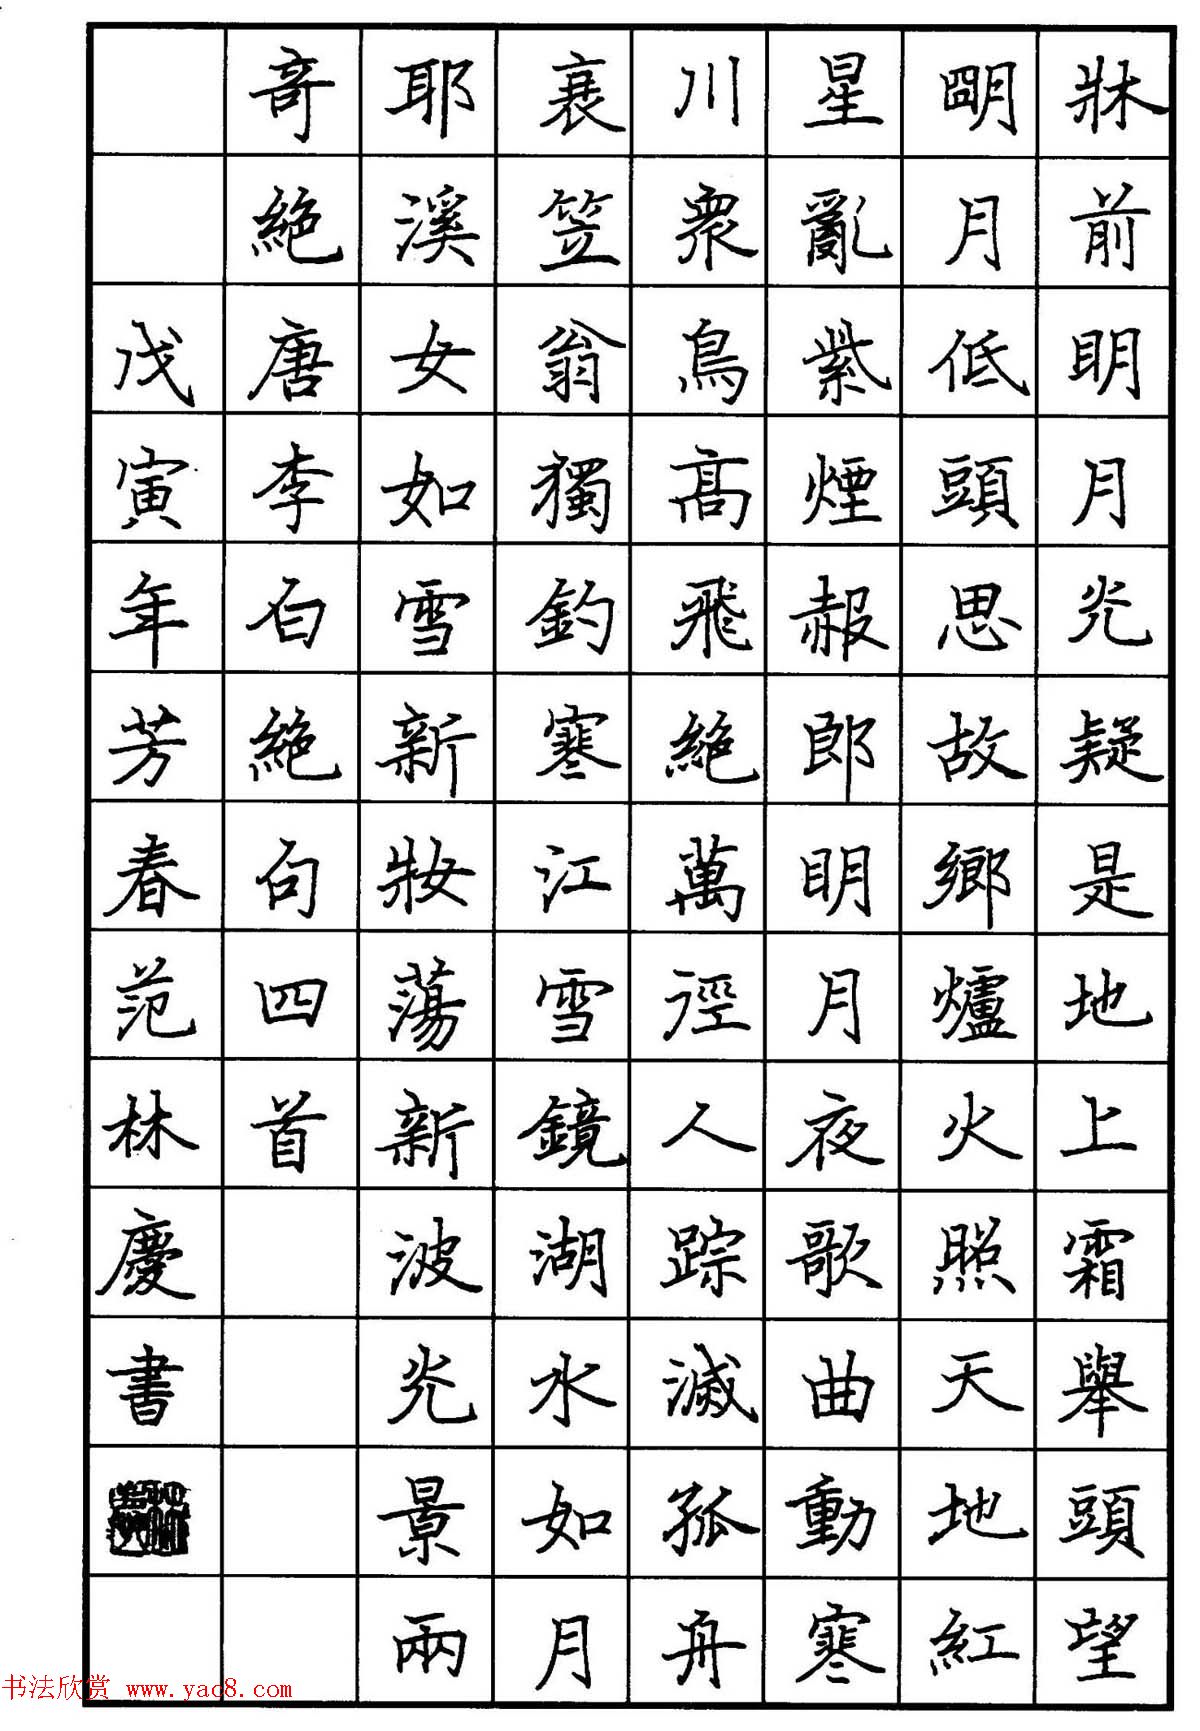 牀前明月光疑是地上霜舉頭望
朙月低頭思故鄉爐火照天地紅
星亂紫煙赧郎明月夜歌曲動寒
川衆鳥髙飛絶萬徑人踪滅孤舟
衰笠翁獨釣寒江雪鏡湖水如月
耶溪女如雪新妝蕩新波光景兩
奇絶唐李白絶句四首
戊寅年芳春范林慶書
书法欣赏 www.yac8.com